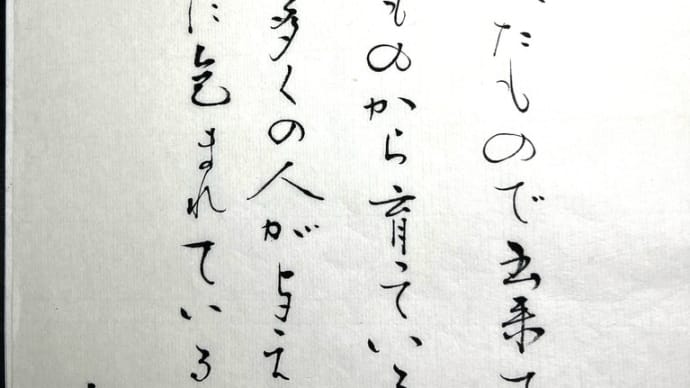 たもので出来て
ものから育っている
多くの人が与え
に包まれている